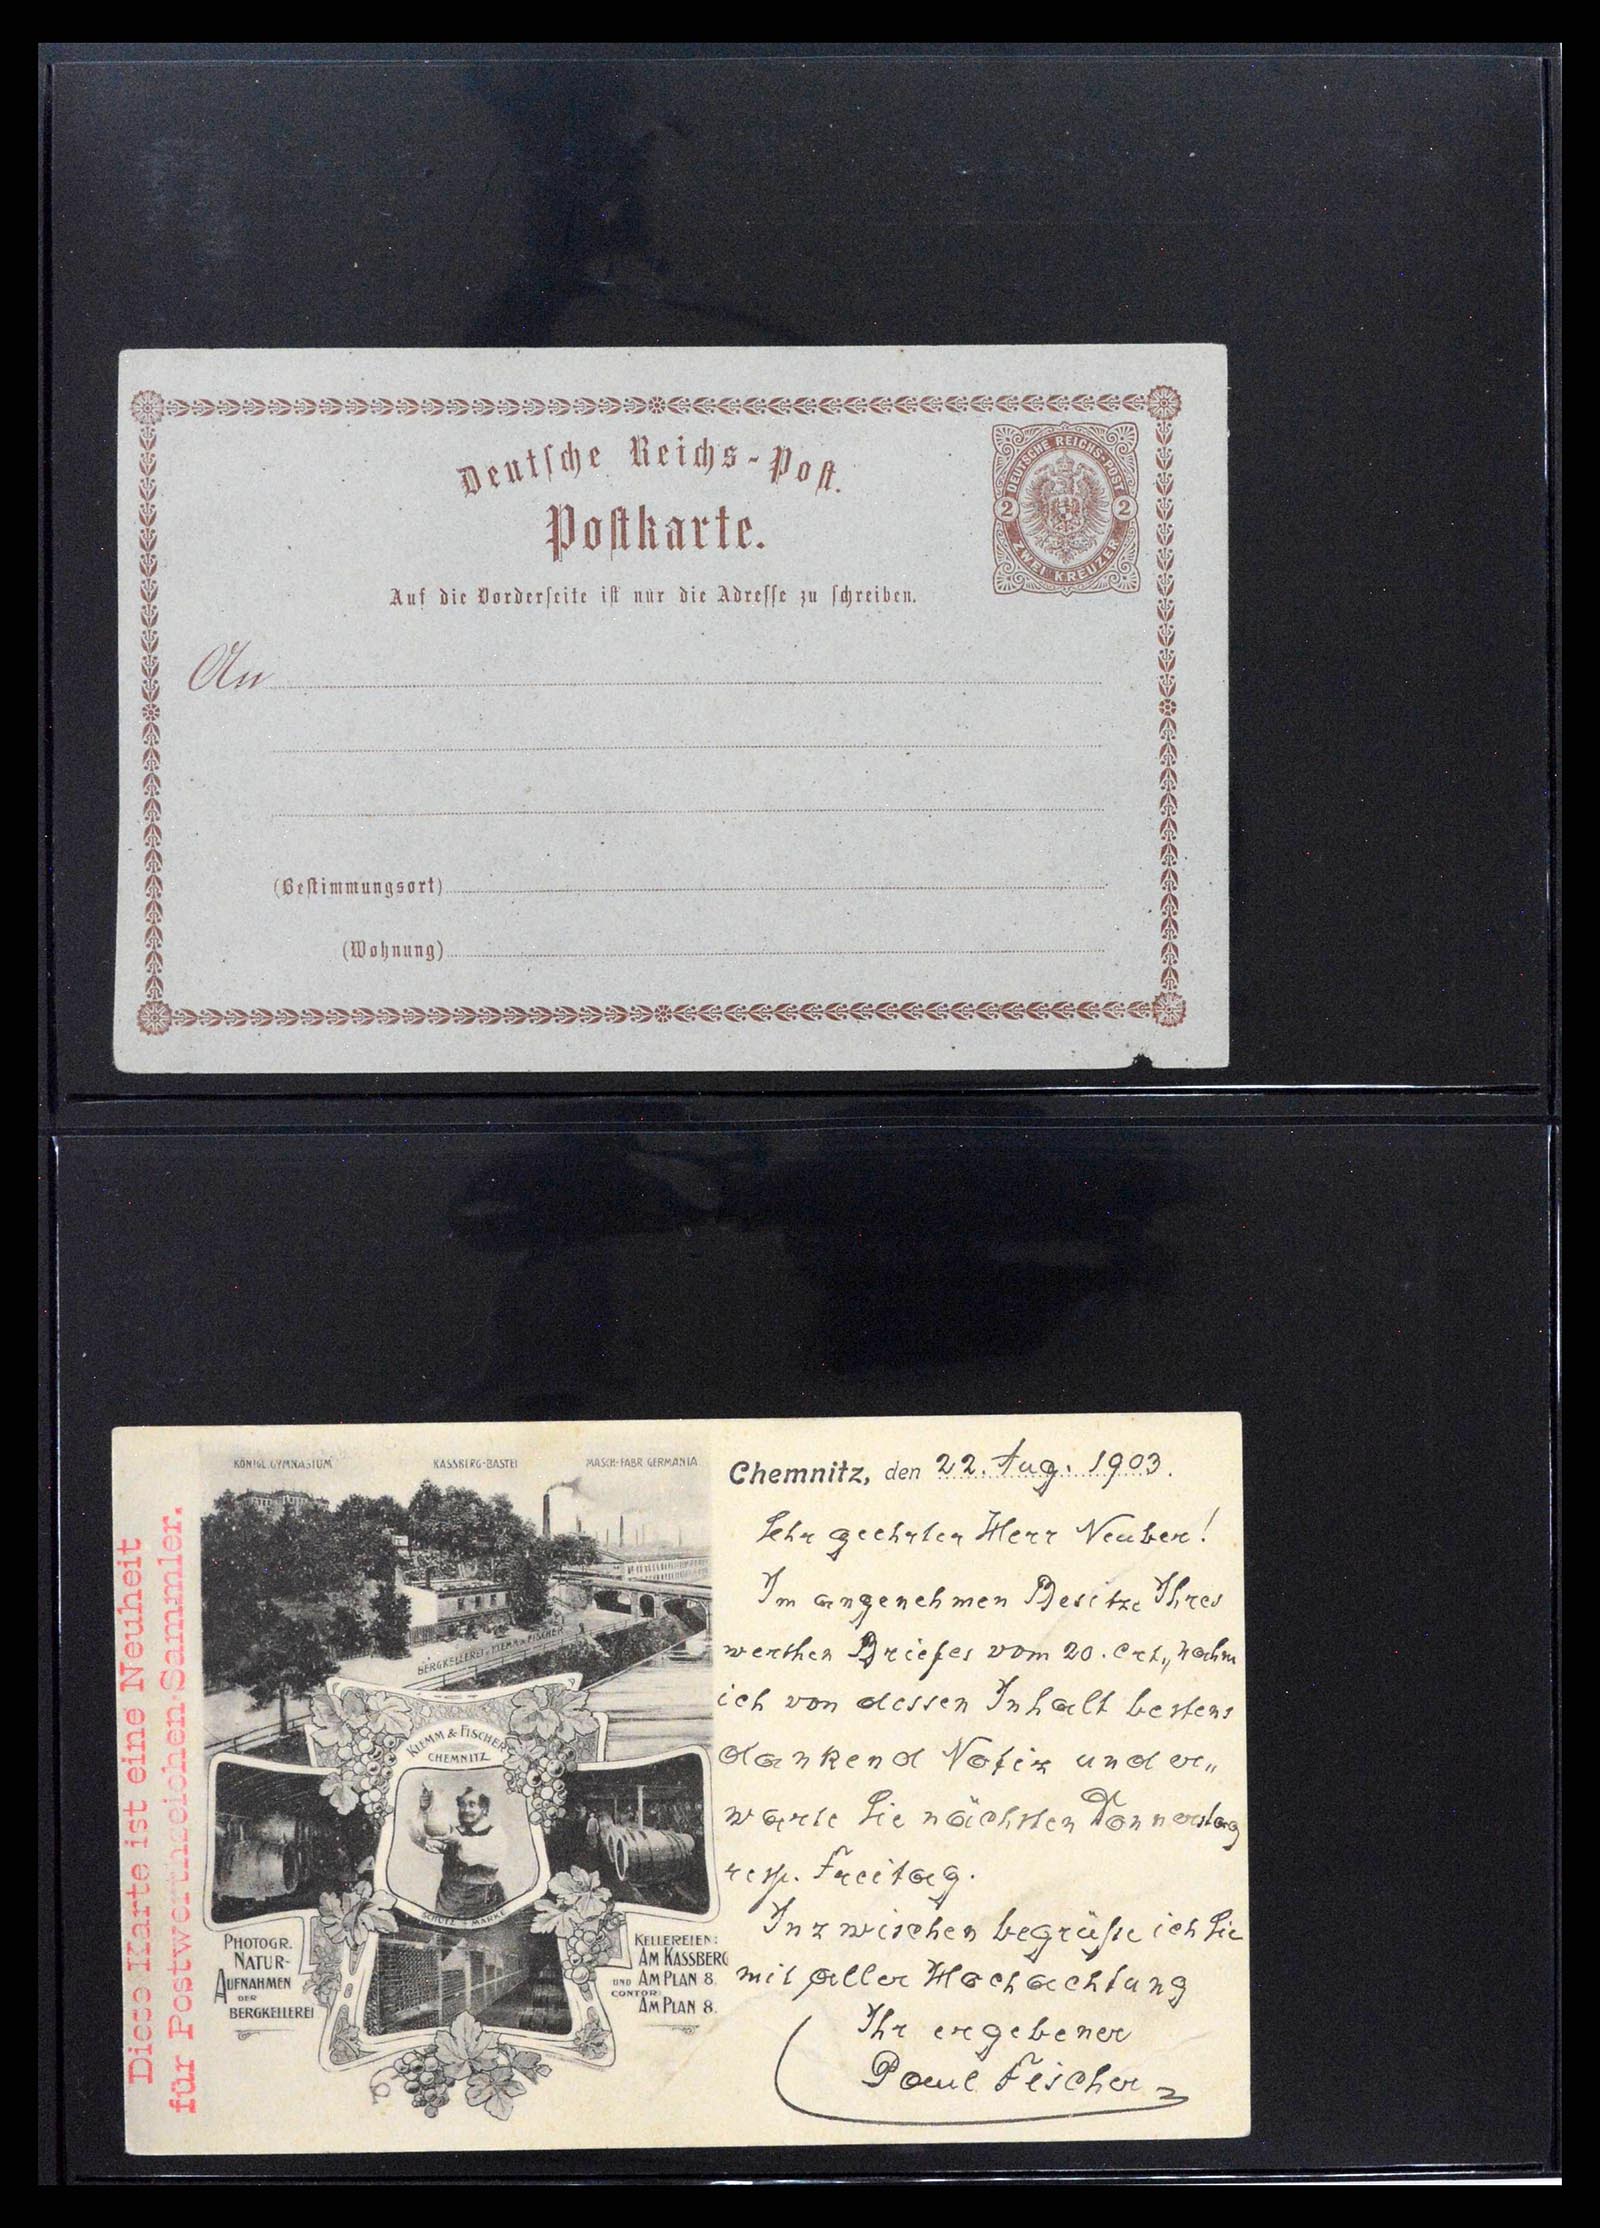 Deutsche Reichs-Post.
Postkarte.
DEUTSCHE REICHS-POST
2 2
ZWEI KREUZER
Auf die Vorderseite ist nur die Adresse zu schreiben.
An
(Bestimmungsort)
(Wohnung)
Diese Karte ist eine Neuheit
für Postwerthzeichen-Sammler.
KÖNIGL. GYMNASIUM
KASSBERG-BASTEI
MASCH-FABR. GERMANIA
BERGKELLEREI v. KLEMM & FISCHER
KLEMM & FISCHER
CHEMNITZ
SCHUTZ-MARKE
PHOTOGR.
NATUR-
AUFNAHMEN
DER
BERGKELLEREI
KELLEREIEN:
AM KASSBERG
UND AM PLAN 8.
CONTOR:
AM PLAN 8.
Chemnitz, den 22. Aug. 1903.
Sehr geehrter Herr Neuber!
Im angenehmen Besitze Ihres
werthen Briefes vom 20. crt., nahm
ich von dessen Inhalt bestens
dankend Notiz und er„
warte Sie nächsten Donnerstag
resp. Freitag.
Inzwischen begrüße ich Sie
mit aller Hochachtung
Ihr ergebener
Paul Fischer